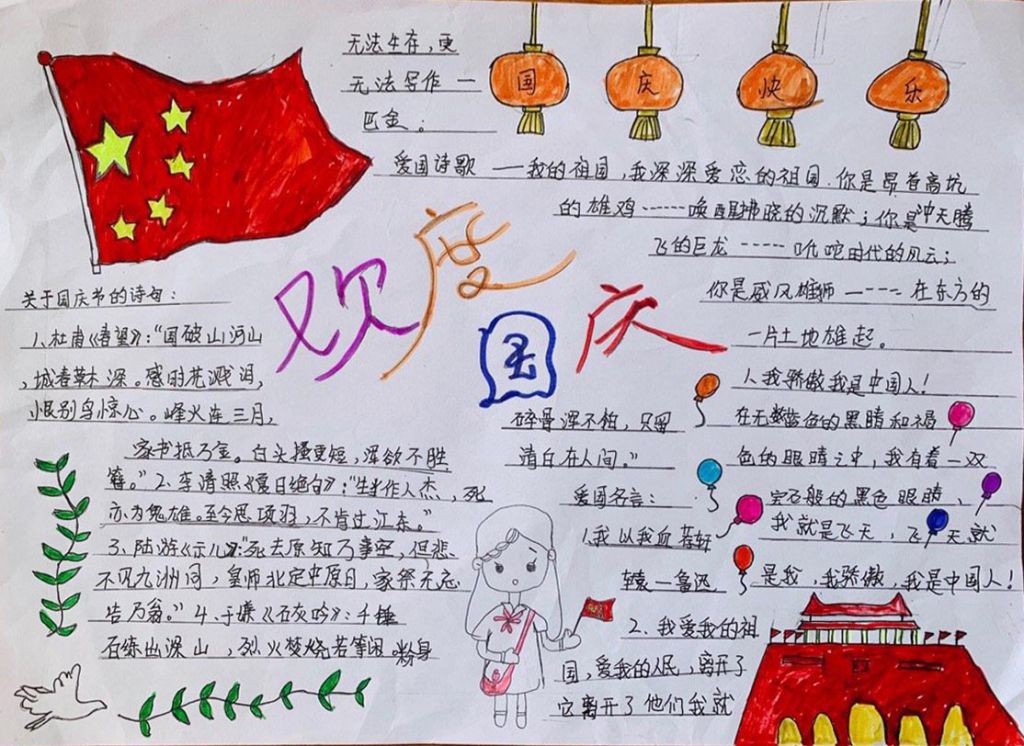 国庆快乐
欢度国庆
关于国庆节的诗句：
1、杜甫《春望》：“国破山河山
，城春草木深。感时花溅泪，
恨别鸟惊心。峰火连三月，
家书抵万金。白头搔更短，浑欲不胜
簪。”2、李清照《夏日绝句》：“生当作人杰，死
亦为鬼雄。至今思项羽，不肯过江东。”
3、陆游《示儿》：“死去原知万事空，但悲
不见九洲同，皇师北定中原日，家祭无忘
告乃翁。”4、于嫌《石灰吟》：千锤
石练出深山，烈火焚烧若等闲。粉身
碎骨浑不怕，只留
清白在人间。”
爱国名言：
1、我以我血荐轩
辕—鲁迅
2、我爱我的祖
国，爱我的人民，离开了
它离开了他们我就
无法生存，更
无法写作—
巴金。
爱国诗歌——我的祖国，我深深爱恋的祖国．你是昂首高坑
的雄鸡······唤醒拂晓的沉默；你是冲天腾
飞的巨龙-----叱咤时代的风云；
你是威风雄狮-----在东方的
一片土地雄起。
人我骄傲我是中国人！
在无数蓝色的黑睛和褐
色的眼睛之中，我有着一双
宝石般的黑色眼睛、
我就是飞天，飞天就
是我，我骄傲，我是中国人！